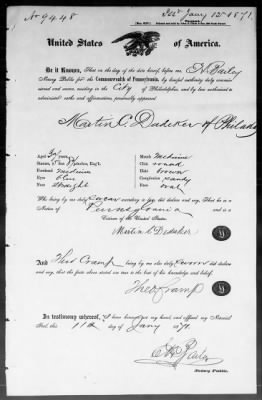 No 9448
Jany 12th 1871.
United States of America.
Be it Known, That on the day of the date hereof, before me
Notary Public for the Commonwealth of Pennsylvania, by lawful authority duly commissioned and sworn, residing in the City of Philadelphia, and by law authorized to administer oaths and affirmations, personally appeared
Martin C. Dedeker of Philada
Aged
Stature
Forehead medium
Eyes blue
Nose straight
Mouth medium
Chin round
Hair brown
Complexion sandy
Face oval
Who being by me duly sworn did declare and say, That he is a
Native of Pennsylvania and is a
Citizen of the United States.
Martin C Dedeker
And Theo Cramp being by me also duly sworn did declare
and say, that the facts above stated are true to the best of his knowledge and belief.
Theo Cramp
In testimony whereof, I have hereunto set my hand, and affixed my Notarial
Seal, this 11th day of Jany 1871.
Notary Public.